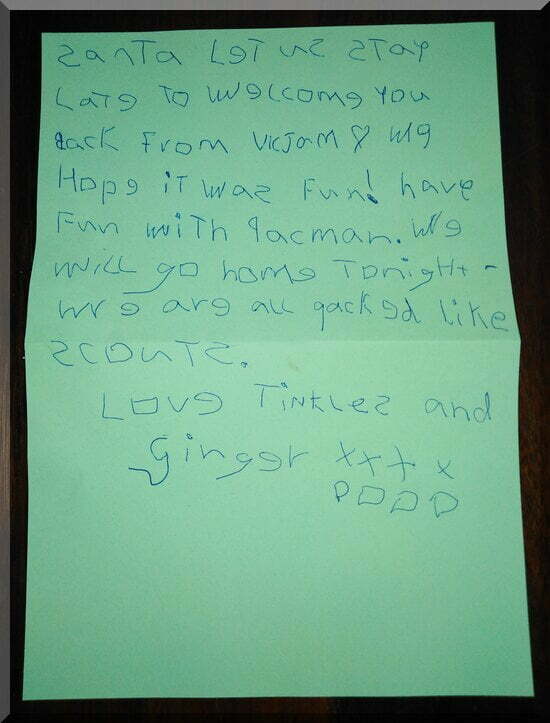 Santa Let us stay
Late to welcome you
back from vicJam & we
Hope it was fun! have
Fun with Pacman. We
will go home Tonight -
we are all packed Like
scouts.
Love Tinkles and
Ginger xxxx
DOOD